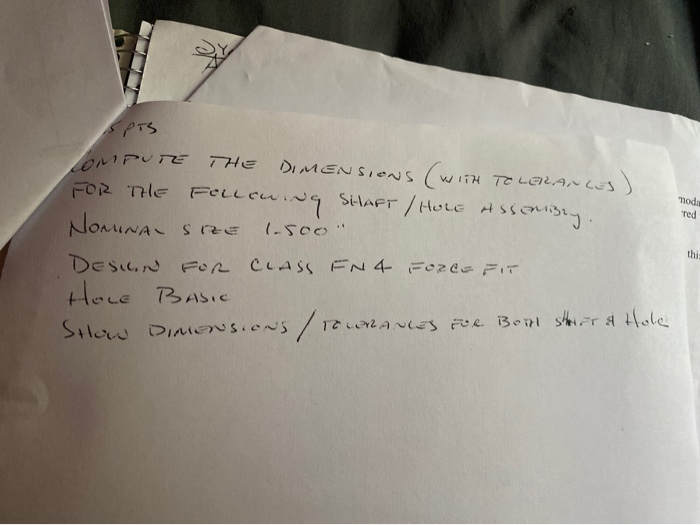 2Y
A
5 PTS
COMPUTE THE DIMENSIONS (WITH TOLERANCES)
FOR THE FOLLOWING SHAFT/HOLE ASSEMBLY.
NOMINAL SIZE 1.500"
DESIGN FOR CLASS FN4 FORCE FIT
HOLE BASIC
SHOW DIMENSIONS/TOLERANCES FOR BOTH SHAFT & Hole
moda
red
thi